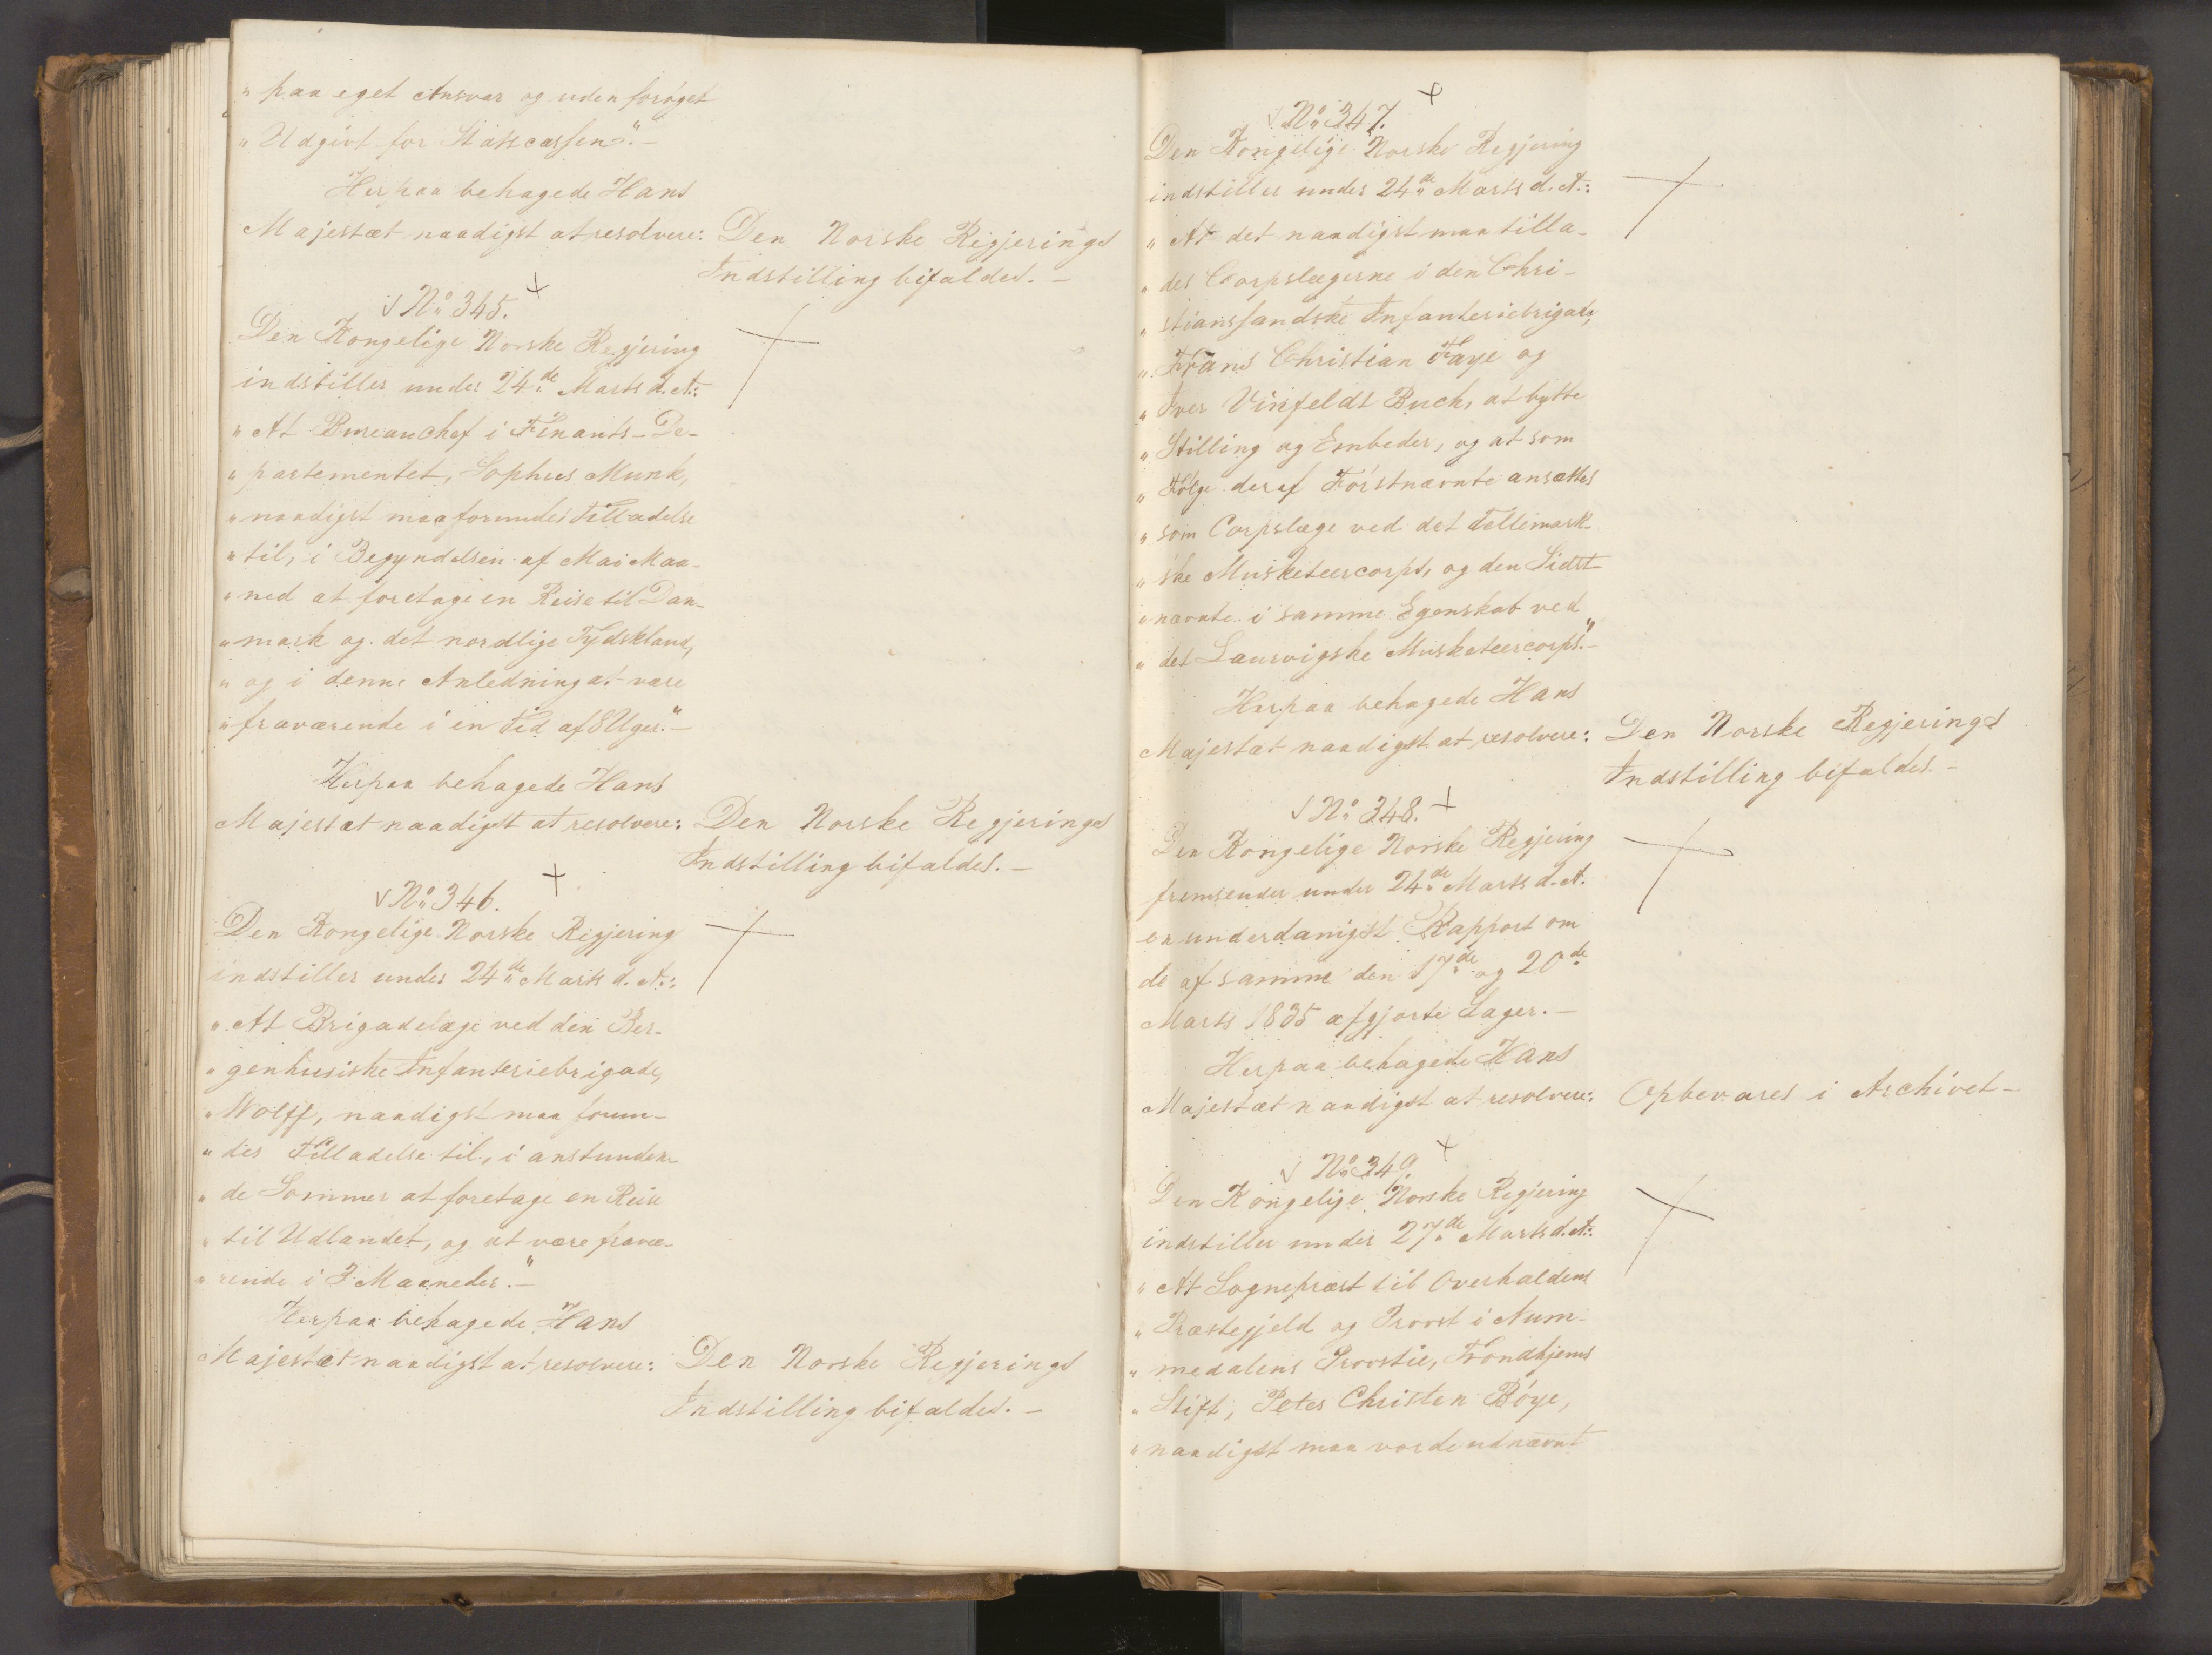 „ paa eget Ansvar og uden forøget
„ Udgivt for Statscassen“. –
Herpaa behagede Hans
Majestæt naadigst at resolvere: Den Norske Regjerings
Indstilling bifaldes. –
No 345.
Den Kongelige Norske Regjering
indstiller under 24de Marts d. A.:
„ At Bureauchef i Finants-De-
„ partementet, Sophus Munk,
„ naadigst maa forundes Tilladelse
„ til, i Begyndelsen af Mai Maa-
„ ned at foretage en Reise til Dan-
„ mark og det nordlige Tydskland,
„ og i denne Anledning at være
„ fraværende i en Tid af 8 Uger.“ –
Herpaa behagede Hans
Majestæt naadigst at resolvere: Den Norske Regjerings
Indstilling bifaldes. –
No 346.
Den Kongelige Norske Regjering
indstiller under 24de Marts d. A.:
„ At Brigadelæge ved den Ber-
„ genhusiske Infanteriebrigade,
„ Wolff, naadigst maa forun-
„ des Tilladelse til, i anstunden-
„ de Sommer at foretage en Reise
„ til Udlandet, og at være fravæ-
„ rende i 3 Maaneder.“ –
Herpaa behagede Hans
Majestæt naadigst at resolvere: Den Norske Regjerings
Indstilling bifaldes. –
No 347.
Den Kongelige Norske Regjering
indstiller under 24de Marts d. A.:
„ At det naadigst maa tilla-
„ des Corpslægerne i den Chri-
„ stianssandske Infanteriebrigade,
„ Frans Christian Faye og
„ Iver Vinfeldt Buch, at bytte
„ Stilling og Embeder, og at som
„ Følge deraf Førstnævnte ansættes
„ som Corpslæge ved det Tellemark-
„ ske Musketeercorps, og den Sidst-
„ nævnte i samme Egenskab ved
„ det Laurvigske Musketeercorps.“ –
Herpaa behagede Hans
Majestæt naadigst at resolvere: Den Norske Regjerings
Indstilling bifaldes. –
No 348.
Den Kongelige Norske Regjering
fremsender under 24de Marts d. A.
en underdanigst Rapport om
de af samme den 17de og 20de
Marts 1835 afgjorte Sager. –
Herpaa behagede Hans
Majestæt naadigst at resolvere: Opbevares i Archivet –
No 349.
Den Kongelige Norske Regjering
indstiller under 27de Marts d. A.:
„ At Sognepræst til Overhaldens
„ Præstegjeld og Provst i Num-
„ medalens Provstie, Trondhjems
„ Stift, Peter Christen Bøye,
„ naadigst maa vorde udnævnt